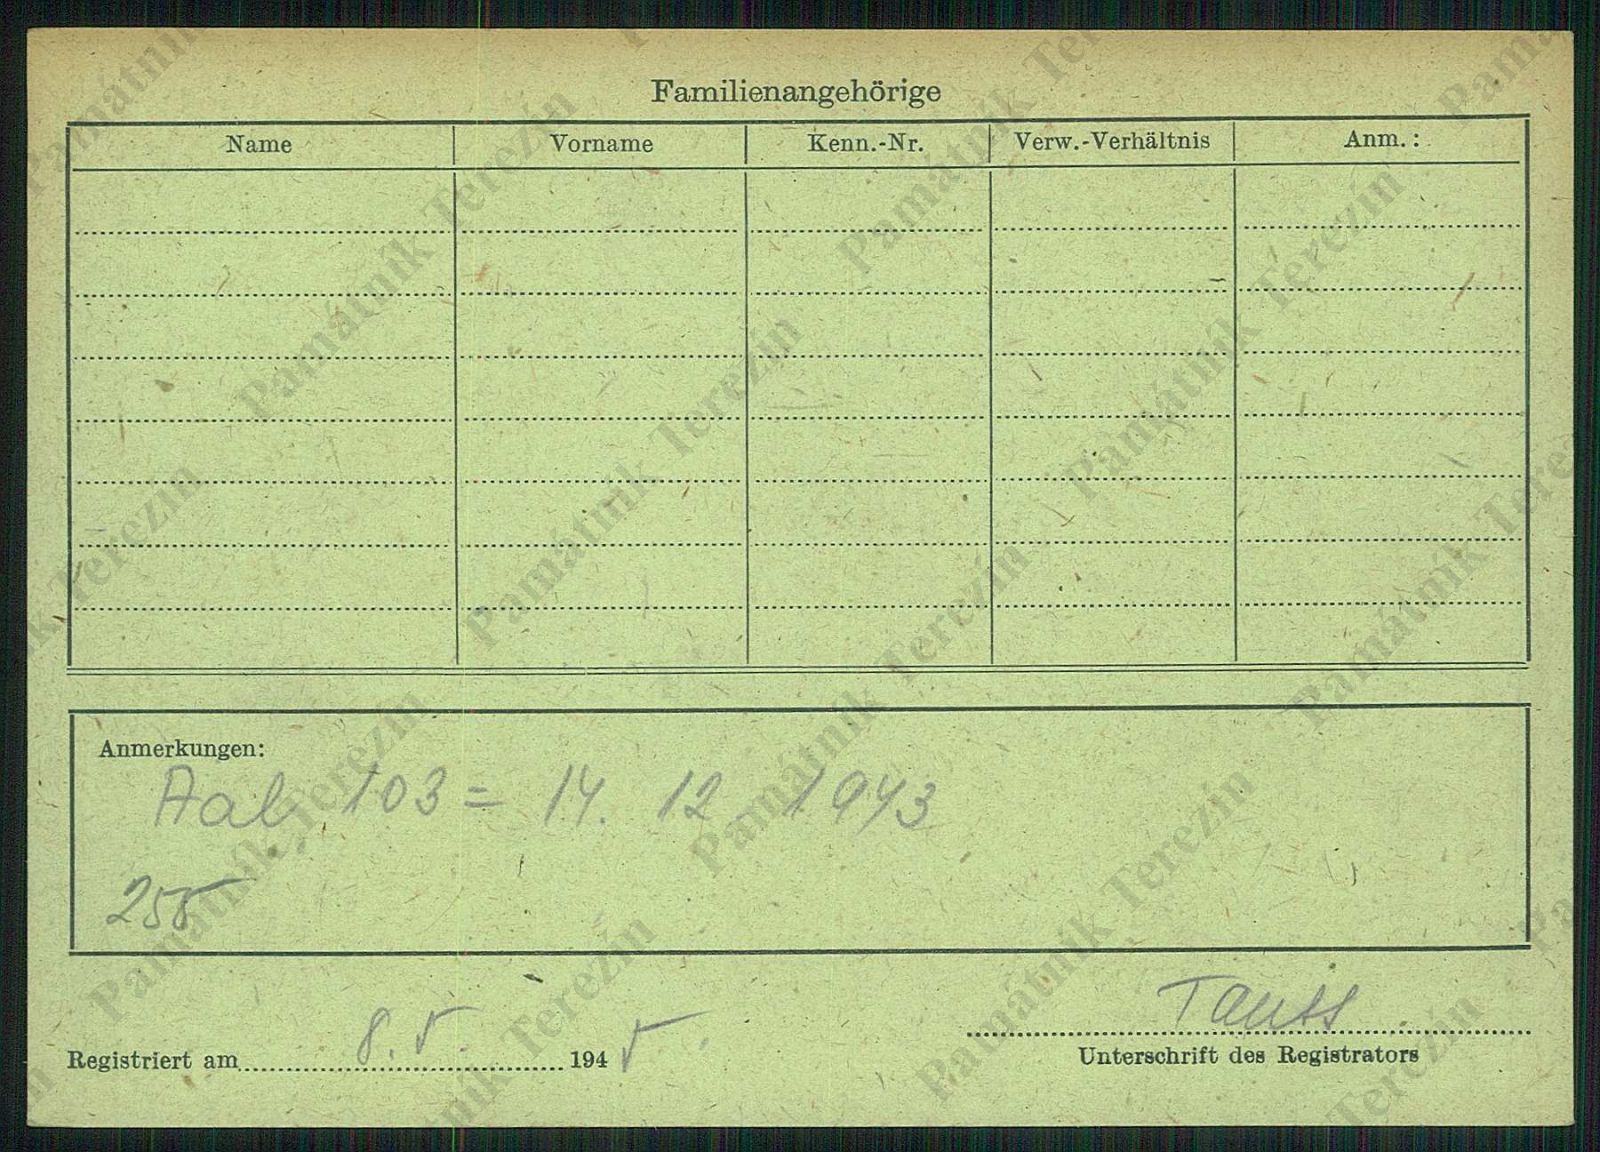 Familienangehörige
Name Vorname Kenn.-Nr. Verw.-Verhältnis Anm.:
Anmerkungen:
103 = 14. 12. 1943
255
Registriert am 8. 5. 1945.
Unterschrift des Registrators
Památník Terezín